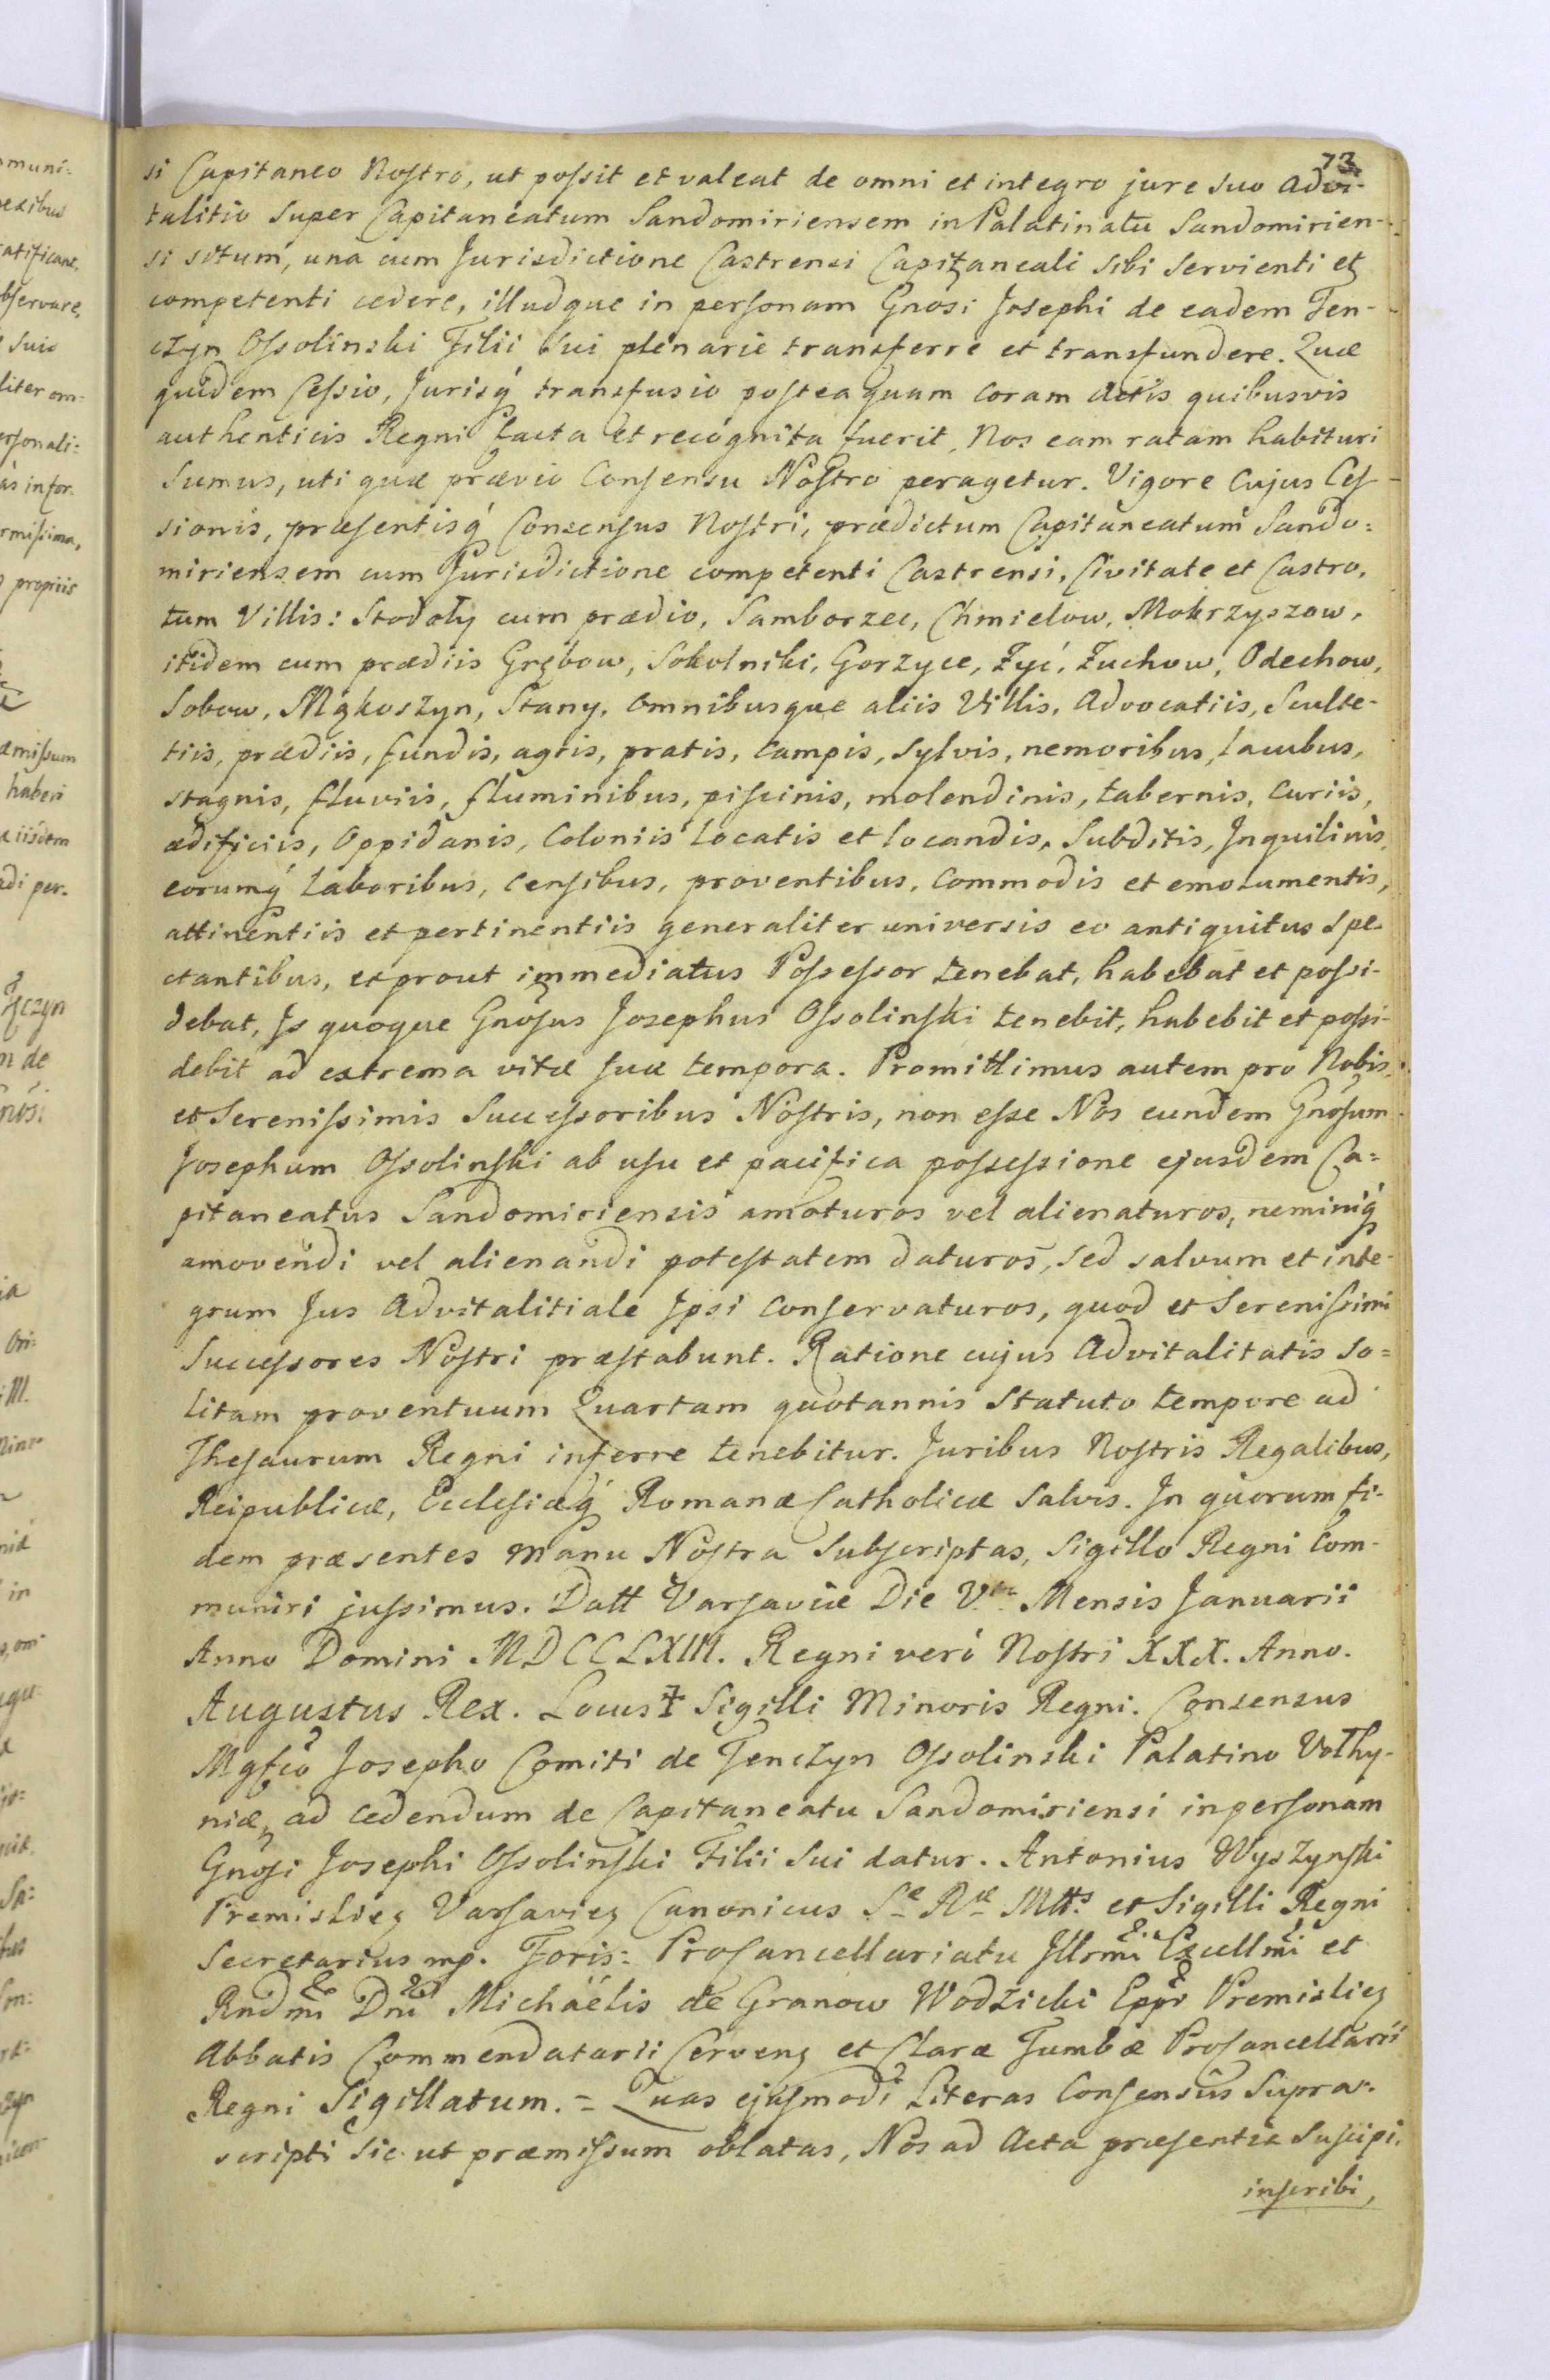 73
si Capitaneo Nostro, ut possit et valeat de omni et integro jure suo advi-
talitio super Capitaneatum Sandomiriensem in Palatinatu Sandomirien-
si situm, una cum Jurisdictione Castrensi Capitaneali sibi servienti et
competenti cedere, illudque in personam Gnosi Josephi de eadem Ten-
czyn Ossolinski Filii sui plenarie transferre et transfundere. Quæ
quidem Cessio, Jurisq́ transfusio posteaquam coram actis quibusvis
authenticis Regni facta et recognita fuerit, Nos eam ratam habituri
sumus, uti quæ prævio Consensu Nostro peragetur. Vigore cujus Ces-
sionis, præsentisq́ Consensus Nostri, prædictum Capitaneatum Sando=
miriensem cum Jurisdictione competenti Castrensi, Civitate et Castro,
tum Villis: Stodoły cum prædio, Samborzec, Chmielow, Mokrzyszow,
itidem cum prædiis Grębow, Sokolniki, Gorzyce, Żyć, Żuchow, Odechow,
Sobow, Mąkoszyn, Stany, omnibusque aliis Villis, Advocatiis, Sculte-
tiis, prædiis, fundis, agris, pratis, campis, sylvis, nemoribus, lacubus,
stagnis, fluviis, fluminibus, piscinis, molendinis, tabernis, curiis,
ædificiis, Oppidanis, Coloniis locatis et locandis, Subditis, Inquilinis,
eorumq́ laboribus, censibus, proventibus, commodis et emolumentis,
attinentiis et pertinentiis generaliter universis eo antiquitus spe-
ctantibus, et prout immediatus Possessor tenebat, habebat et possi-
debat, Is quoque Gnosus Josephus Ossolinski tenebit, habebit et possi-
debit ad extrema vitæ suæ tempora. Promittimus autem pro Nobis,
et Serenissimis Successoribus Nostris, non esse Nos eundem Gnosum
Josephum Ossolinski ab usu et pacifica possessione ejusdem Ca=
pitaneatus Sandomiriensis amoturos vel alienaturos, neminiq́
amovendi vel alienandi potestatem daturos, sed salvum et inte-
grum Jus Advitalitiale Ipsi conservaturos, quod et Serenissimi
Successores Nostri præstabunt. Ratione cujus Advitalitatis so=
litam proventuum Quartam quotannis statuto tempore ad
Thesaurum Regni inferre tenebitur. Juribus Nostris Regalibus,
Reipublicæ, Ecclesiæq́ Romanæ Catholicæ salvis. In quorum fi-
dem præsentes manu Nostra subscriptas, Sigillo Regni Com-
muniri jussimus. Datt Varsaviæ Die V.ta Mensis Januarii
Anno Domini MDCCLXIII. Regni veró Nostri XXX. Anno.
Augustus Rex. Locus ‡ Sigilli Minoris Regni. Consensus
Mgfco Josepho Comiti de Tenczyn Ossolinski Palatino Volhy-
niæ, ad cedendum de Capitaneatu Sandomiriensi in personam
Gnosi Josephi Ossolinski Filii sui datur. Antonius Wyszynski
Premislieȝ Varsavieȝ Canonicus Sæ Ræ Mtts et Sigilli Regni
Secretarius mp. Foris: Procancellariatu Illrmi Excellmi et
Rndmi Dni Michaëlis de Granow Wodzicki Eppi Premislieȝ
Abbatis Commendatarii Cervenȝ et Claræ Tumbæ Procancellarii
Regni Sigillatum. = Quas ejusmodi Literas Consensûs supra-
scripti sic ut præmissum oblatas, Nos ad Acta præsentia suscipi,
inscribi,